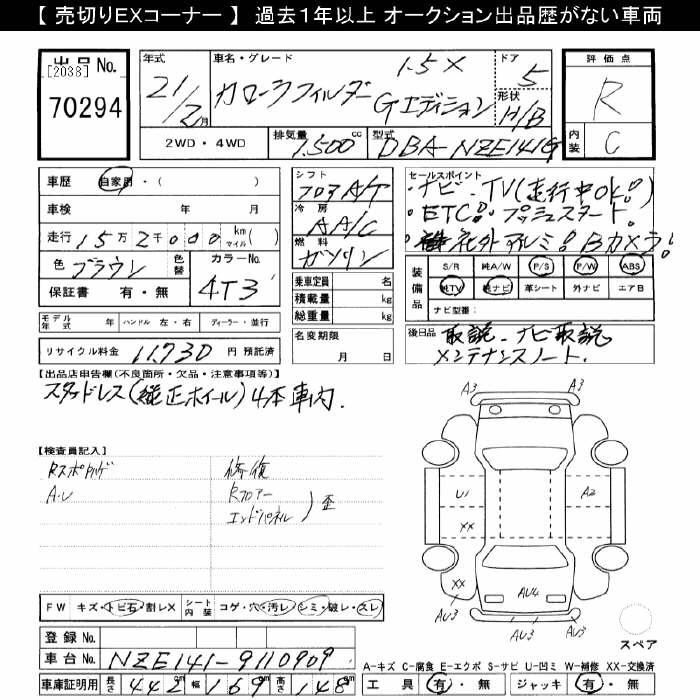 【 売切りEXコーナー 】 過去１年以上 オークション出品歴がない車両
出品 No.
[2038]
70294
年式
21/2月
車名・グレード
カローラフィルダー 1.5X Gエディション
ドア
5
形状
H/B
評価点
R
内装
C
2WD ・ 4WD
排気量 1,500 cc
型式 DBA-NZE141G
車歴 自家用・( )
車検 年 月
走行 15万2千000 km マイル ( )
色 ブラウン 色替
カラーNo.
4T3
保証書 有・無
シフト
フロアA/T
冷房
AAC
燃料
ガソリン
乗車定員 名
積載量 kg
総重量 kg
セールスポイント
・ナビ・TV(走行中OK!)
・ETC!・プッシュスタート。
・社外アルミ!Bカメラ!
装備品
S/R 純A/W P/S P/W ABS
純TV 純ナビ 革シート 外ナビ エアB
ナビ型番:
モデル年式 年 ハンドル 左・右 ディーラー・並行
リサイクル料金 11,730 円 預託済
名変期限
月 日
後日品 取説、ナビ取説
メンテナンスノート、
【出品店申告欄(不良箇所・欠品・注意事項等)】
スタッドレス(純正ホイール)4本車内.
【検査員記入】
A.U
修復
Rフロアー
エンドパネル
歪
A3 A3
U1 A2
XX
XX AU4
AU3 AU3 AU3
スペア
FW キズ・トビ石・割レX シート内装 コゲ・穴・汚レ・シミ・破レ・スレ
登録 No.
車台 No. NZE141-9110909
車庫証明用 長さ 442 cm 幅 169 cm 高さ 148 cm
A-キズ C-腐食 E-エクボ S-サビ U-凹ミ W-補修 XX-交換済
工具 有・無 ジャッキ 有・無